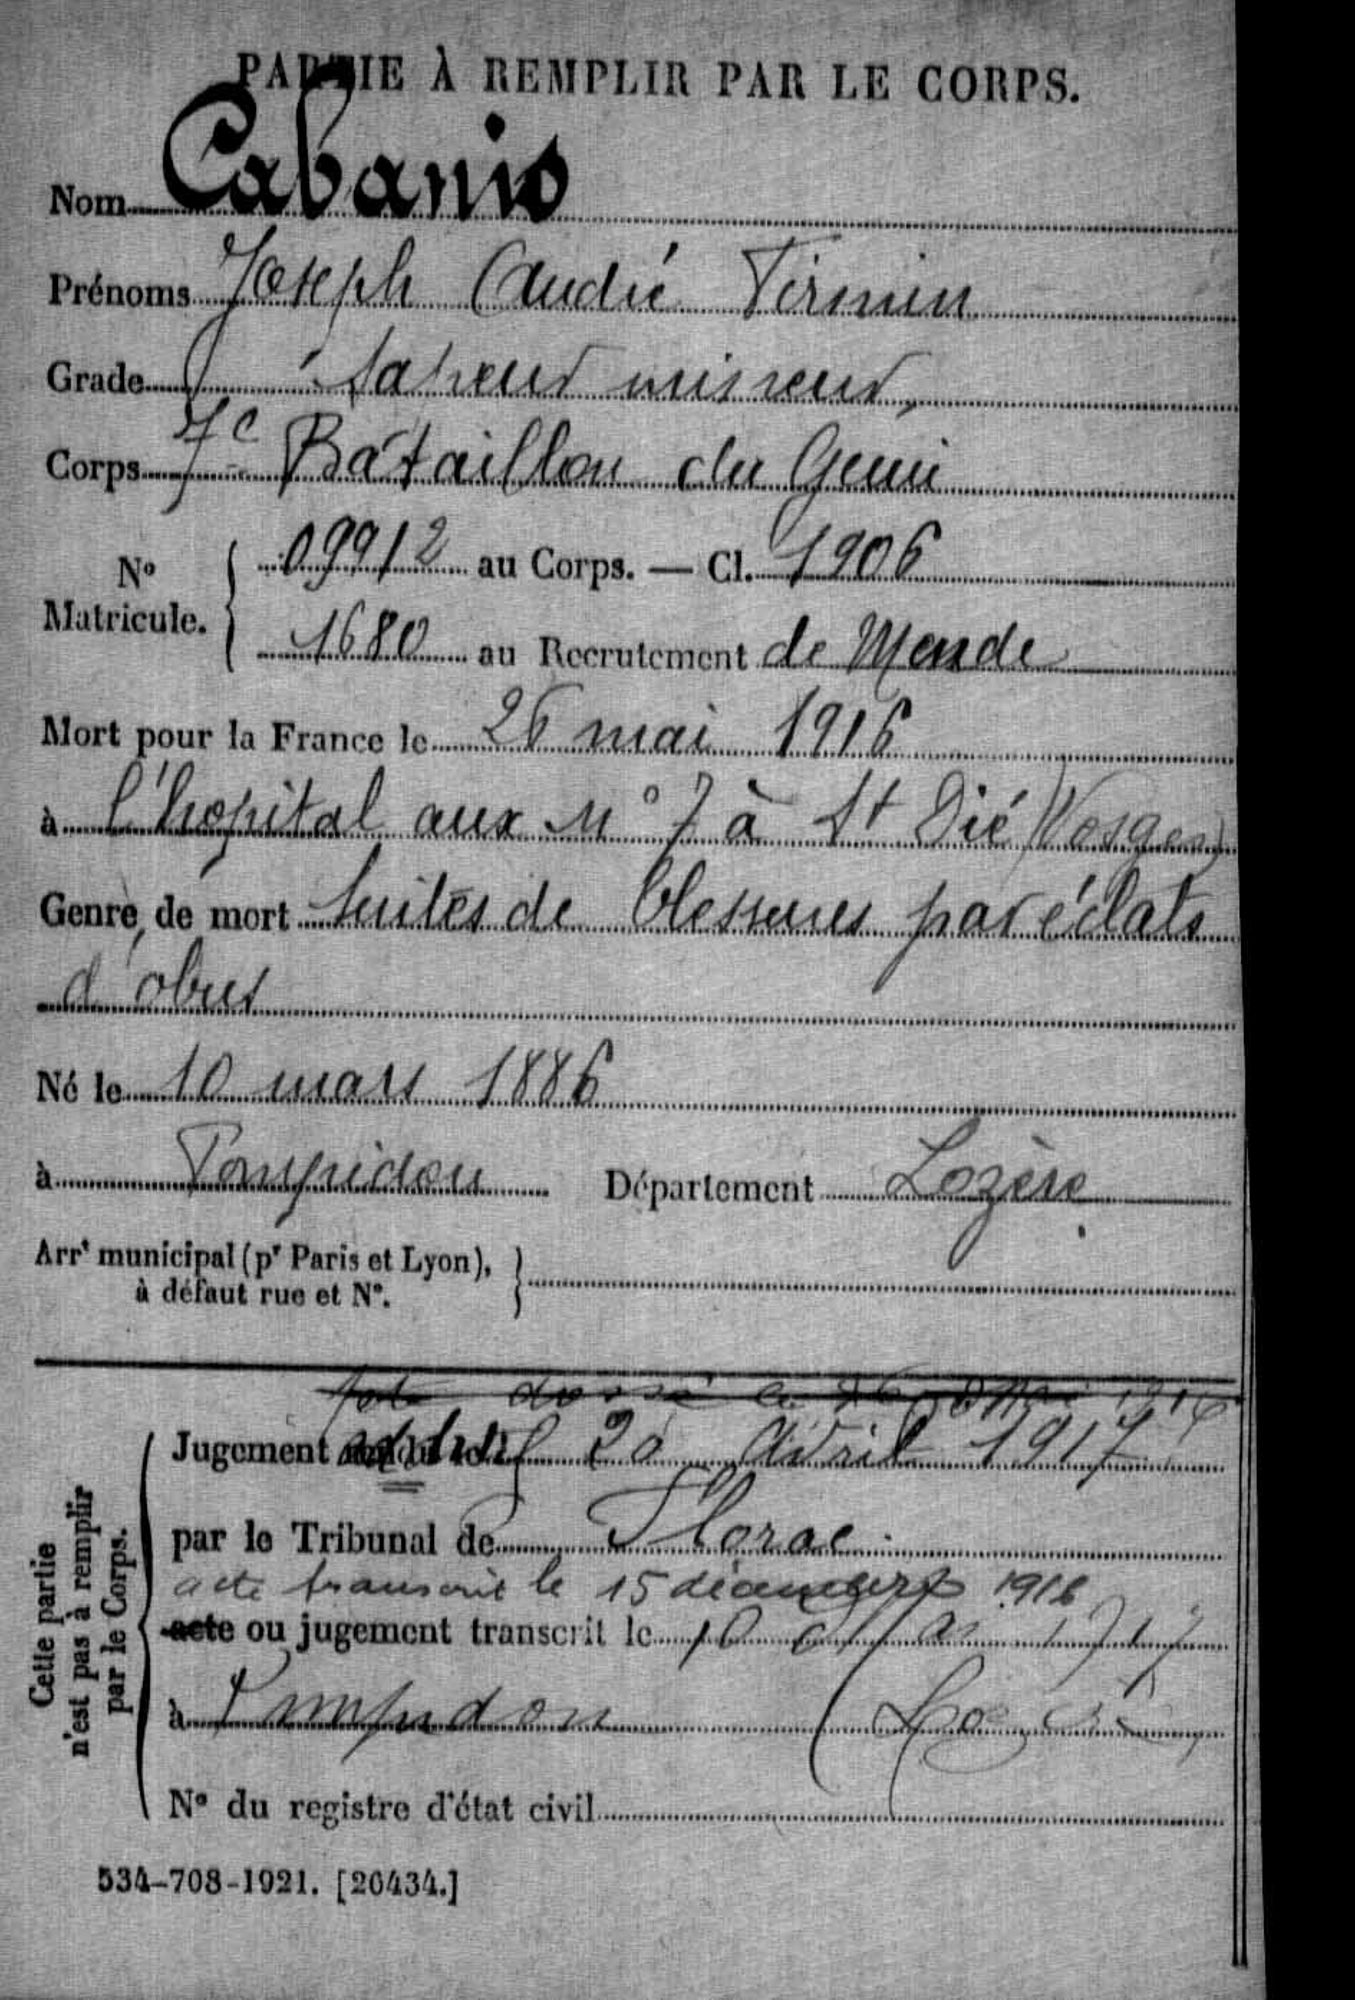 PARTIE À REMPLIR PAR LE CORPS.
Nom Cabanis
Prénoms Joseph André Firmin
Grade Sapeur mineur
Corps 7e Bataillon du Génie
No Matricule. { 09912 au Corps. — Cl. 1906
1680 au Recrutement de Mende
Mort pour la France le 26 mai 1916
à l'hopital aux n° 7 à St Dié (Vosges)
Genre de mort Suites de blessures par éclats
d'obus
Né le 10 mars 1886
à Pompidou Département Lozère
Arrt municipal (pr Paris et Lyon),
à défaut rue et N°.
Cette partie
n'est pas à remplir
par le Corps.
Jugement 20 Avril 1917
par le Tribunal de Florac
acte transcrit le 15 décembre 1916
acte ou jugement transcrit le 10 1917
à Pompidou (Lozère)
N° du registre d'état civil
534-708-1921. [26434.]